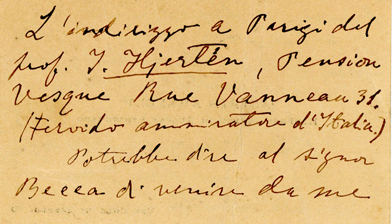 L'indirizzo a Parigi del
prof. I. Hjertén, Pension
Vesque Rue Vanneau 31.
(Fervido ammiratore d'Italia.)
Potrebbe dire al signor
Becca di venire da me